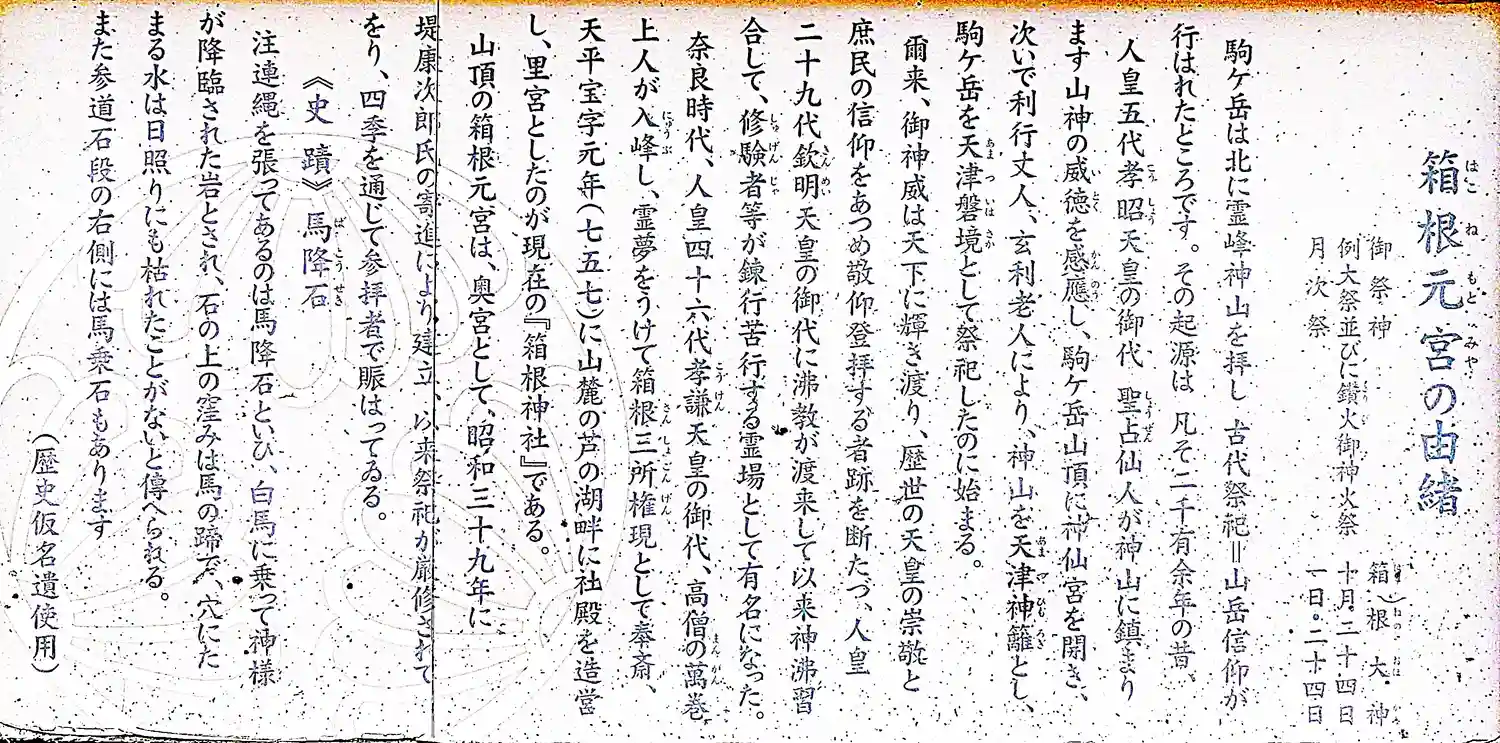 箱根元宮の由緒
御祭神 箱根大神
例大祭並びに鑽火御神火祭 十月二十四日
月次祭 一日・二十四日
駒ケ岳は北に霊峰神山を拝し 古代祭祀=山岳信仰が
行はれたところです。その起源は 凡そ二千有余年の昔、
人皇五代孝昭天皇の御代 聖占仙人が神山に鎮まり
ます山神の威徳を感應し、駒ケ岳山頂に神仙宮を開き、
次いで利行丈人、玄利老人により、神山を天津神籬とし、
駒ケ岳を天津磐境として祭祀したのに始まる。
爾来、御神威は天下に輝き渡り、歴世の天皇の崇敬と
庶民の信仰をあつめ敬仰登拝する者跡を断たづ、人皇
二十九代欽明天皇の御代に沸教が渡来して以来神沸習
合して、修験者等が錬行苦行する霊場として有名になった。
奈良時代、人皇四十六代孝謙天皇の御代、高僧の萬巻
上人が入峰し、霊夢をうけて箱根三所権現として奉斎、
天平宝字元年(七五七)に山麓の芦の湖畔に社殿を造営
し、里宮としたのが現在の『箱根神社』である。
山頂の箱根元宮は、奥宮として、昭和三十九年に
堤康次郎氏の寄進により建立、以来祭祀が厳修されて
をり、四季を通じて参拝者で賑はってゐる。
《史蹟》馬降石
注連縄を張ってあるのは馬降石といひ、白馬に乗って神様
が降臨された岩とされ、石の上の窪みは馬の蹄で、穴にた
まる水は日照りにも枯れたことがないと傳へられる。
また参道石段の右側には馬乗石もあります
(歴史仮名遣使用)